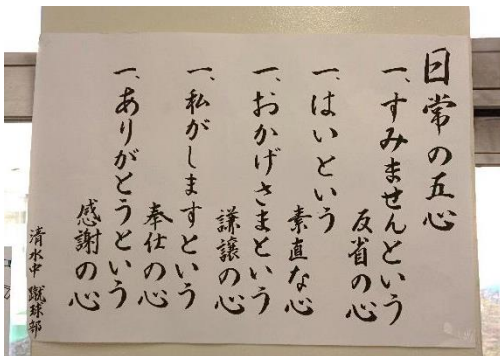 日常の五心
一、すみませんという
反省の心
一、はいという
素直な心
一、おかげさまという
謙譲の心
一、私がしますという
奉仕の心
一、ありがとうという
感謝の心
清水中 蹴球部